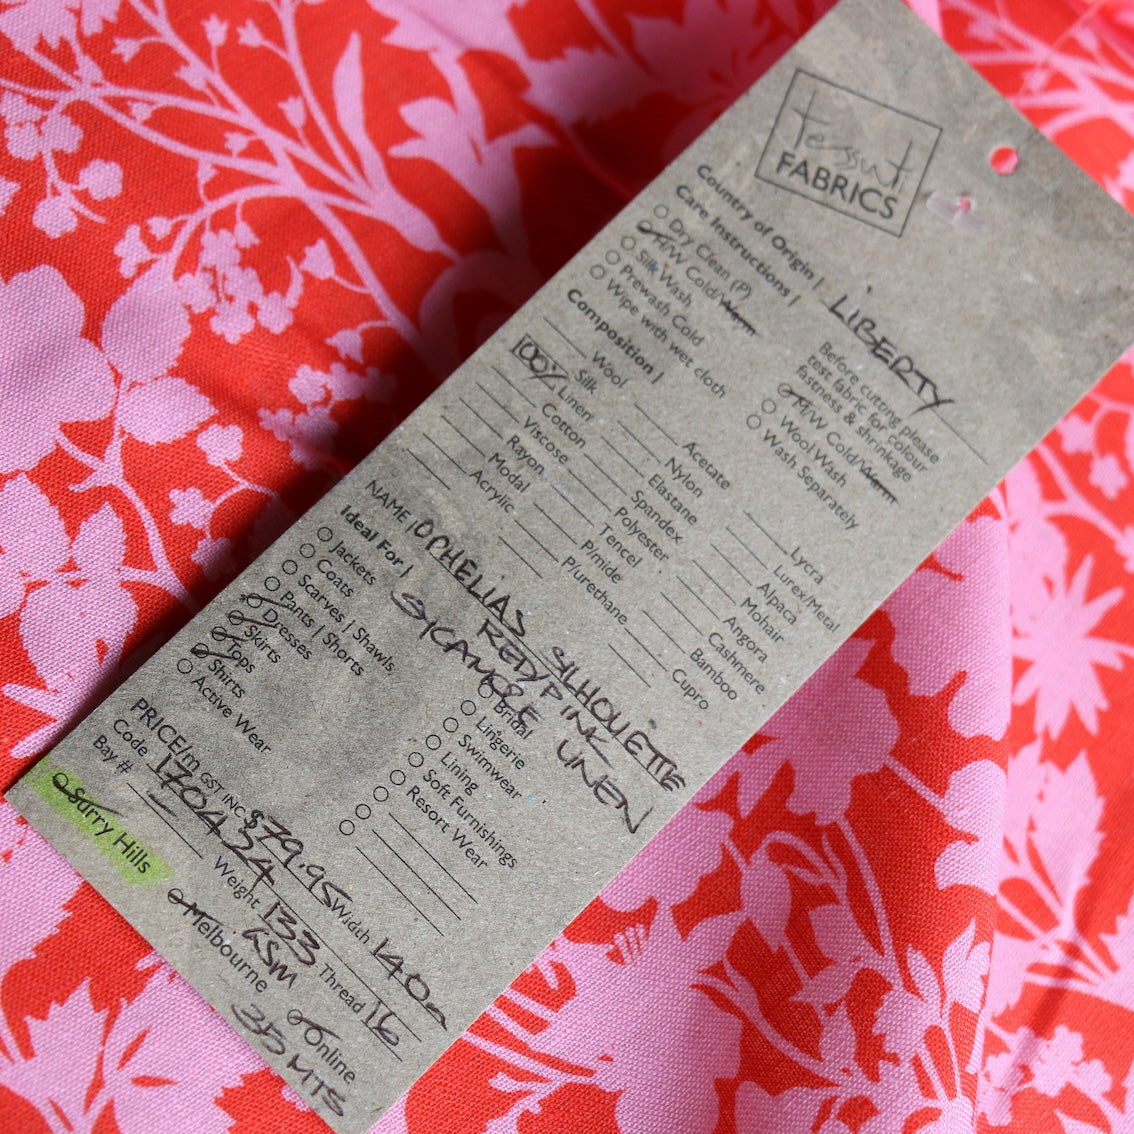 tessuti
FABRICS
Country of Origin | LIBERTY
Care Instructions |
Dry Clean (P)
H/W Cold/Warm
Silk Wash
Prewash Cold
Wipe with wet cloth
Before cutting please
test fabric for colour
fastness & shrinkage
M/W Cold/Warm
Wool Wash
Wash Separately
Composition |
Wool
Silk
100% Linen
Cotton
Viscose
Rayon
Modal
Acrylic
Acetate
Nylon
Elastane
Spandex
Polyester
Tencel
P/mide
P/urethane
Lycra
Lurex/Metal
Alpaca
Mohair
Angora
Cashmere
Bamboo
Cupro
NAME | OPHELIAS SILHOUETTE
RED/PINK LINEN
SYCAMORE
Ideal For |
Jackets
Coats
Scarves | Shawls
Pants | Shorts
Dresses
Skirts
Tops
Shirts
Active Wear
Bridal
Lingerie
Swimwear
Lining
Soft Furnishings
Resort Wear
PRICE/m GST INC $79.95 Width 140cm
Code 170434 Weight 133 GSM Thread 16
Bay #
Surry Hills Melbourne Online
35 MTS